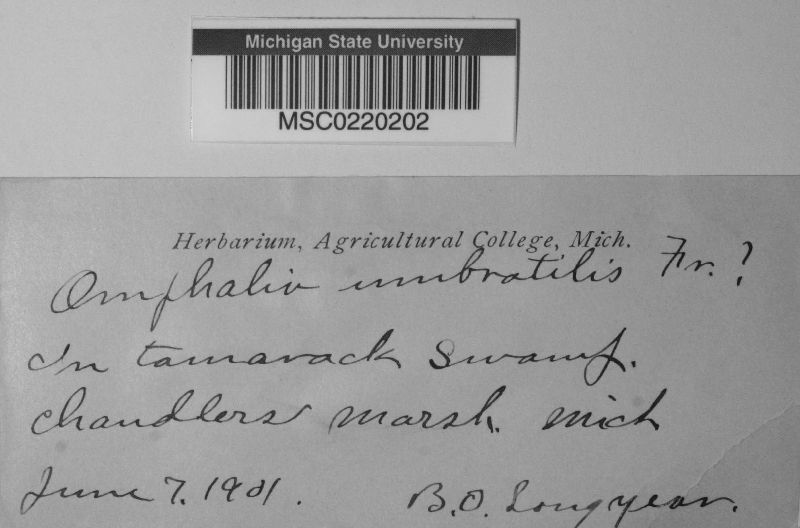 Michigan State University
MSC0220202
Herbarium, Agricultural College, Mich.
Omphalia umbratilis Fr. ?
In tamarack swamp.
Chandlers marsh. Mich
June 7. 1901.
B.O. Longyear.